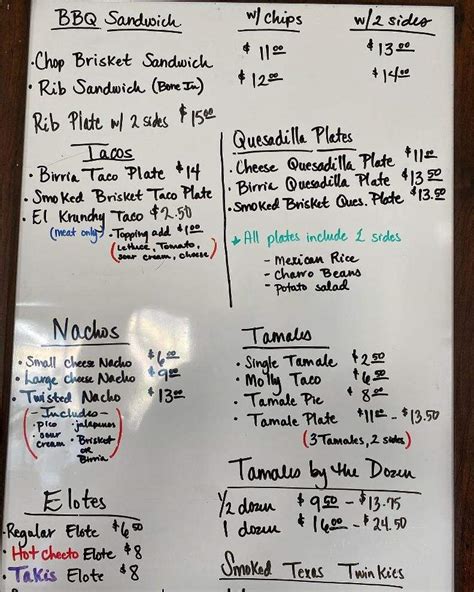 BBQ Sandwich w/ chips w/2 sides
• Chop Brisket Sandwich $11.00 $13.00
• Rib Sandwich (Bone In) $12.00 $14.00
Rib Plate w/ 2 sides $15.00
Tacos
• Birria Taco Plate $14
• Smoked Brisket Taco Plate
• El Krunchy Taco $2.50
(meat only) • Topping add $1.00
(Lettuce, Tomato,
sour cream, cheese)
Quesadilla Plates
• Cheese Quesadilla Plate $11.00
• Birria Quesadilla Plate $13.50
• Smoked Brisket Ques. Plate $13.50
All plates include 2 sides
- Mexican Rice
- Charro Beans
- Potato salad
Nachos
• Small cheese Nacho $6.00
• Large cheese Nacho $9.00
• Twisted Nacho $13.00
- Includes -
• pico • jalapenos
• sour cream • Brisket
OR
Birria
Tamales
• Single Tamale $2.50
• Molly Taco $6.50
• Tamale Pie $8.00
• Tamale Plate $11.00 - $13.50
(3 Tamales, 2 sides)
Tamales by the Dozen
1/2 dozen $9.50 - $13.75
1 dozen $16.00 - $24.50
Elotes
• Regular Elote $6.50
• Hot Cheeto Elote $8
• Takis Elote $8
Smoked Texas Twinkies